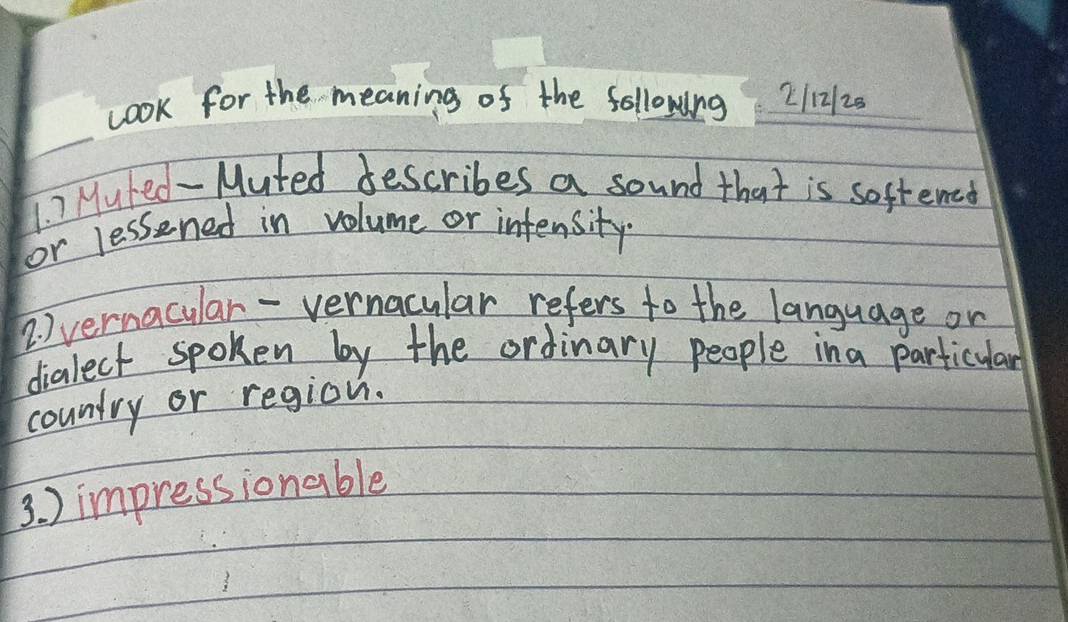 Look for the meaning of the following 2/12/25
1.) Muted - Muted describes a sound that is softened
or lessened in volume or intensity.
2.) vernacular - vernacular refers to the language or
dialect spoken by the ordinary people in a particular
country or region.
3.) impressionable